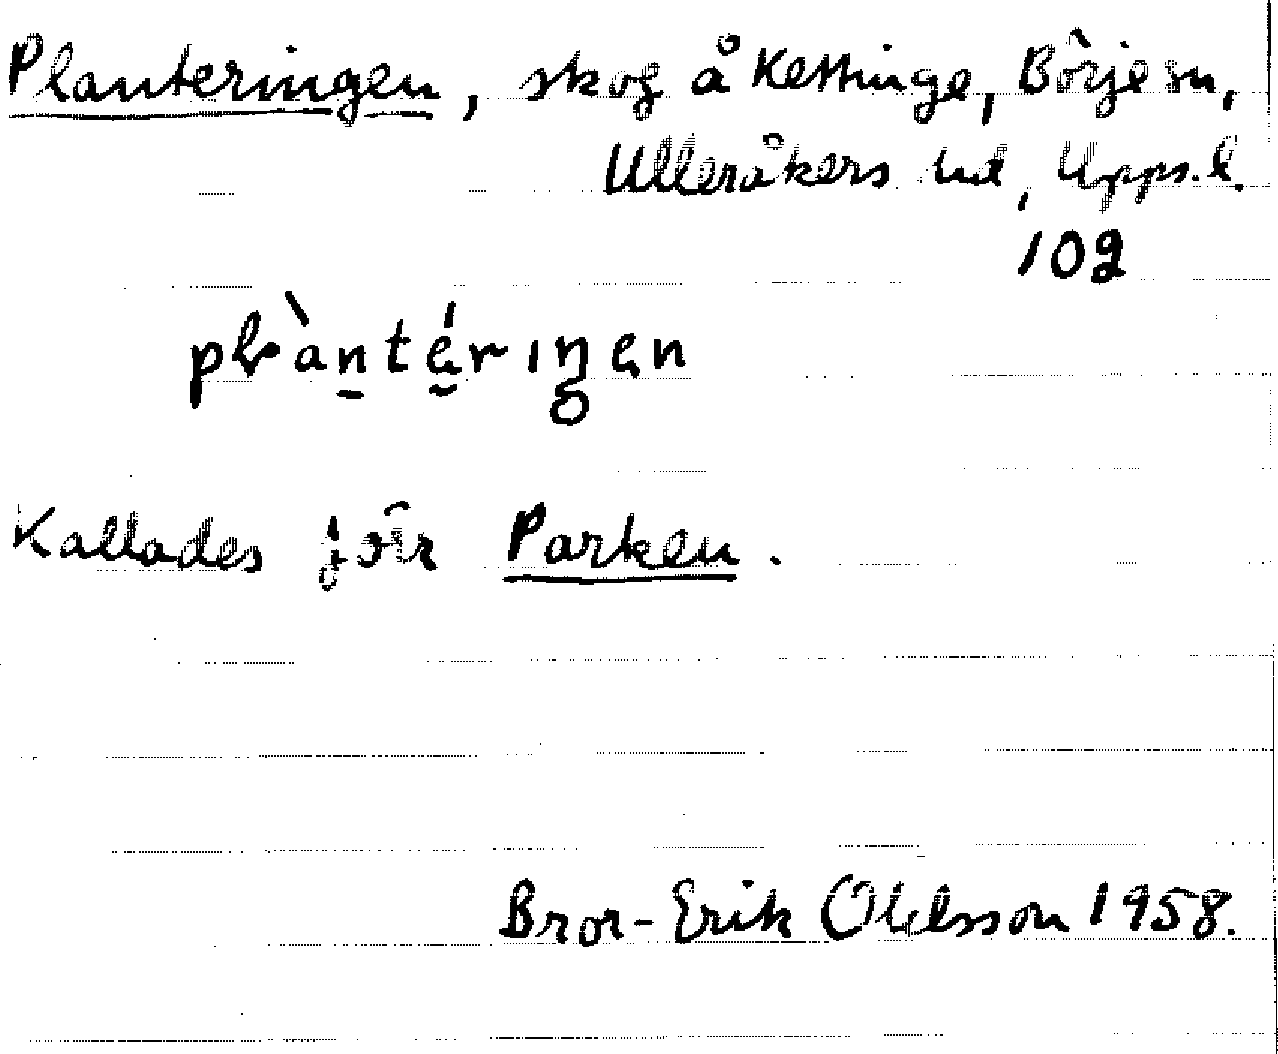 Planteringen, skog å Kettinge, Börje sn,
Ulleråkers hd, Upps. l.
102
plàntériŋen
Kallades förr Parken.
Bror-Erik Ohlsson 1958.